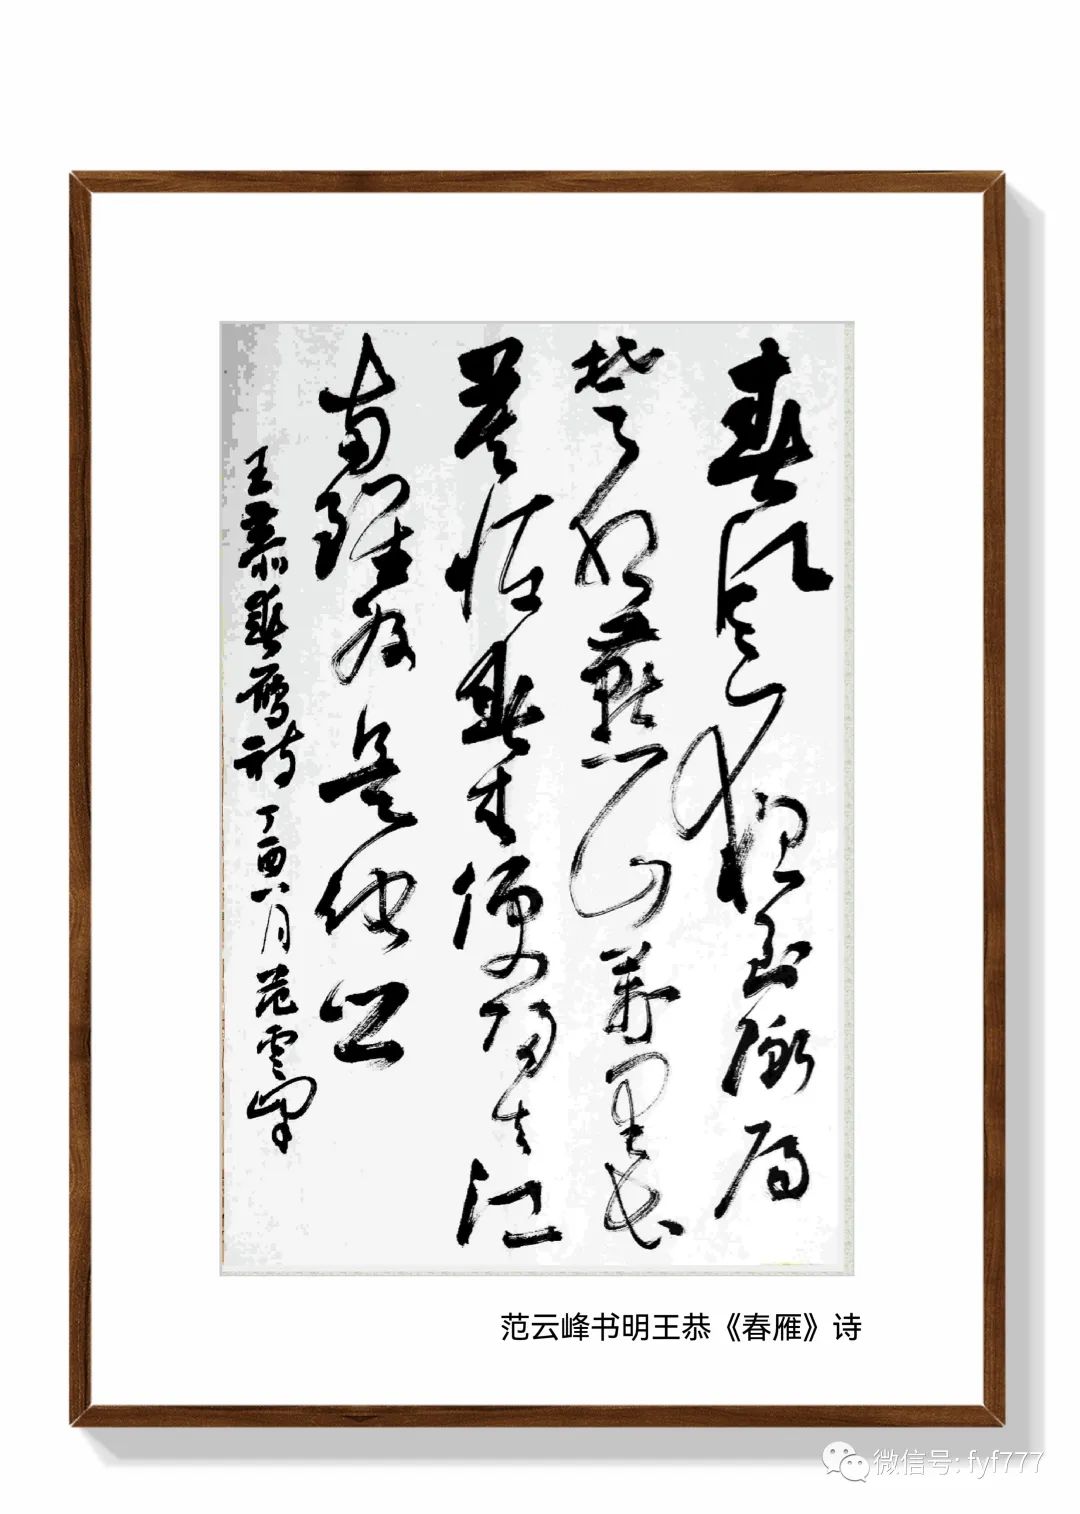 春風一夜到衡陽
楚水燕山萬里長
莫怪春來便歸去江
南雖好是他鄉
王恭春雁詩 丁酉八月 范雲峰
范云峰书明王恭《春雁》诗
微信号: fyf777